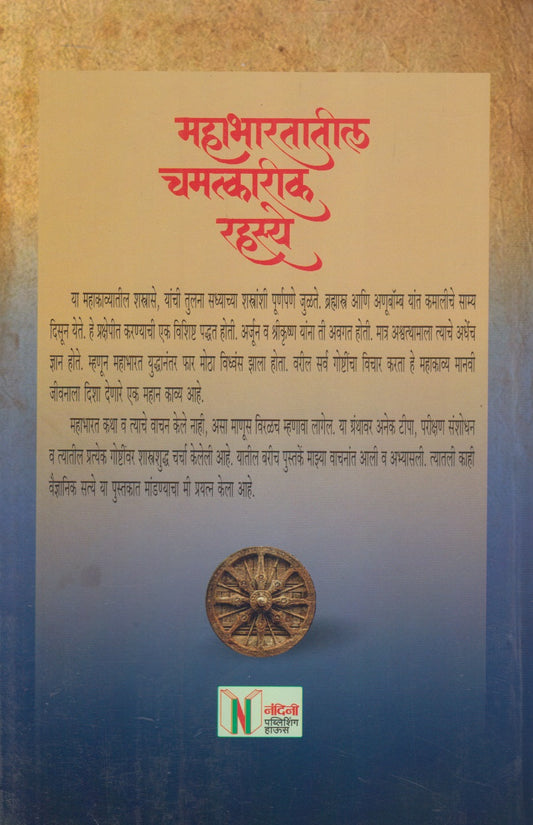 महाभारतातील
चमत्कारीक
रहस्ये
या महाकाव्यातील शस्त्रासे, यांची तुलना सध्याच्या शस्त्रांशी पूर्णपणे जुळते. ब्रह्मास्त्र आणि अणूबॉम्ब यांत कमालीचे साम्य
दिसून येते. हे प्रक्षेपीत करण्याची एक विशिष्ट पद्धत होती. अर्जून व श्रीकृष्ण यांना ती अवगत होती. मात्र अश्वत्थामाला त्याचे अर्धेच
ज्ञान होते. म्हणून महाभारत युद्धानंतर फार मोठा विध्वंस झाला होता. वरील सर्व गोष्टींचा विचार करता हे महाकाव्य मानवी
जीवनाला दिशा देणारे एक महान काव्य आहे.
महाभारत कथा व त्याचे वाचन केले नाही, असा माणूस विरळच म्हणावा लागेल. या ग्रंथावर अनेक टीपा, परीक्षण संशोधन
व त्यातील प्रत्येक गोष्टींवर शास्त्रशुद्ध चर्चा केलेली आहे. यातील बरीच पुस्तकें माझ्या वाचनांत आली व अभ्यासली. त्यातली काही
वैज्ञानिक सत्ये या पुस्तकात मांडण्याचा मी प्रयत्न केला आहे.
नंदिनी
पब्लिशिंग
हाऊस